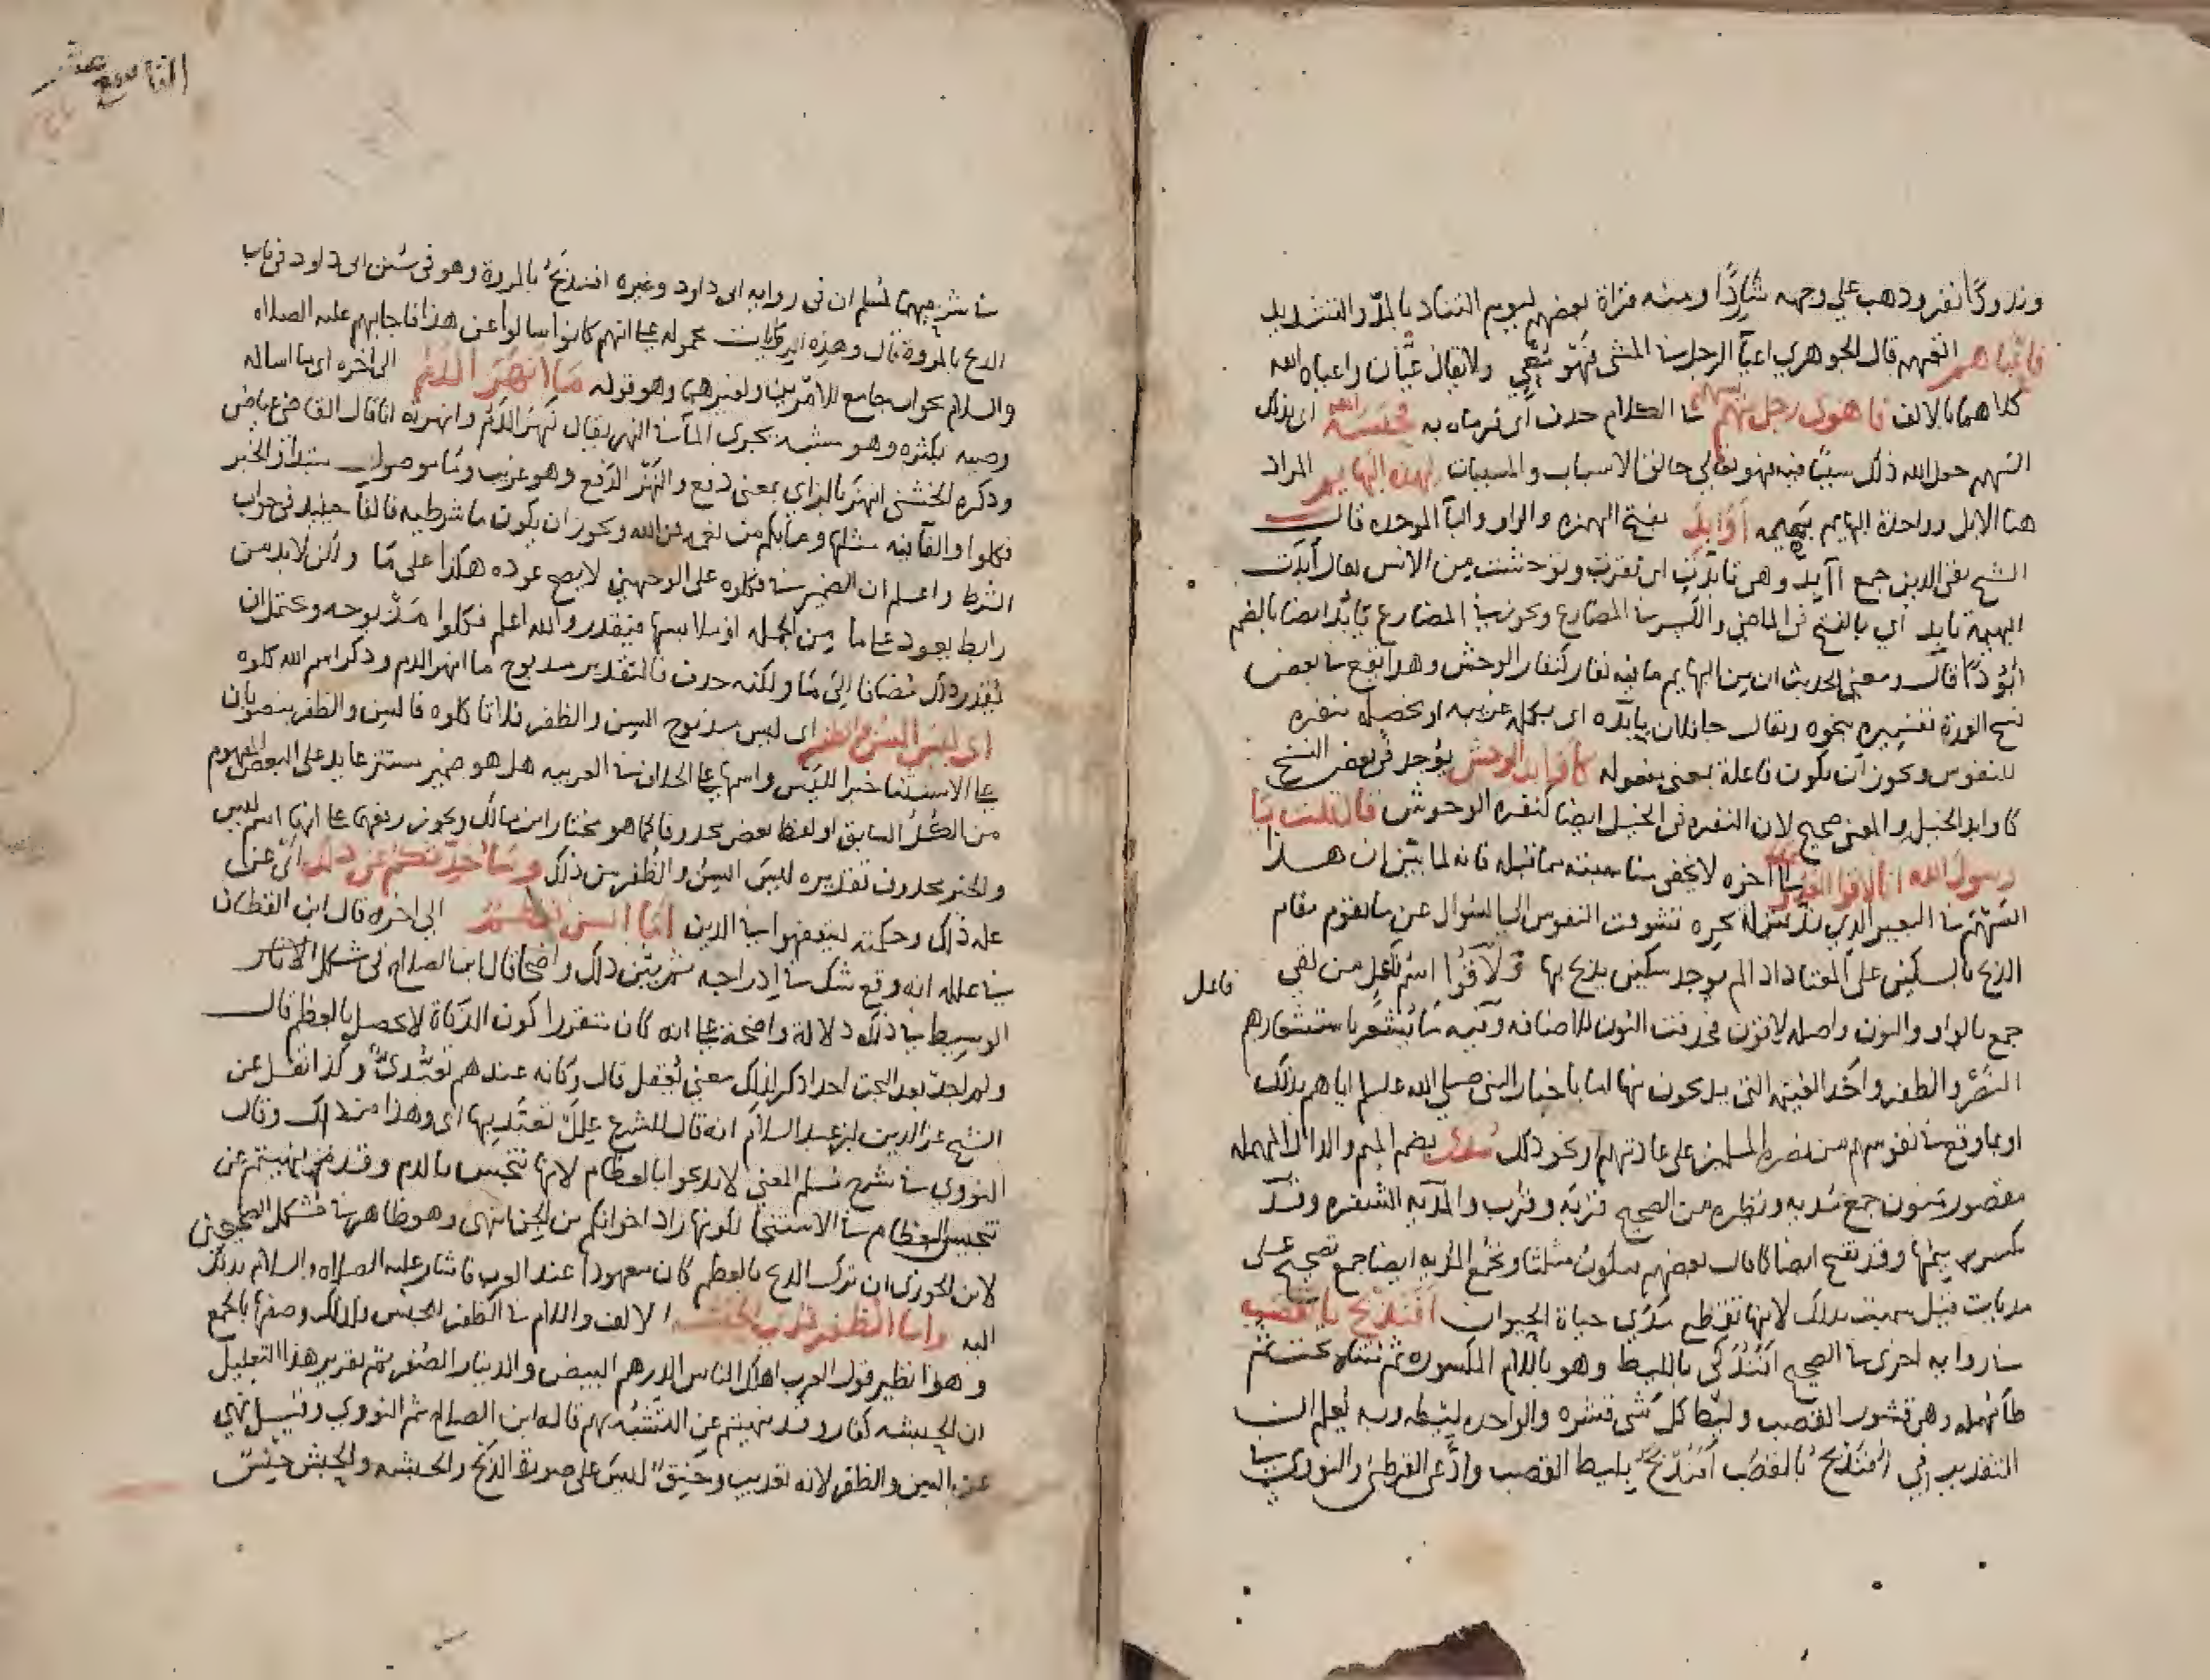 وندودًا نفر وذهب على وجهه شاردًا ومنه قراة بعضهم ليوم التناد بالمدّ والتشديد
فاعياهم الفهه قال الجوهري اعيآ الرجل في المشى فهو مُعْيٍ ولا يقال عيّان واعياه الله
كلاهما بالالف فاهوى رجل منهم بسهم في الكلام حذف اى فرماه به فحبسه الله اى بذلك
السهم جعل الله ذلك سببًا فيه فهو تعالى خالق الاسباب والمسببات لهذه البهايم المراد
هنا الابل وواحدة البهايم بهيمه أوابد بفتح الهمزه والواو والبآ الموحده قال
الشيخ تقى الدين جمع آبدة وهى تأبدت اى نفرت وتوحشت من الانس يقال أبدت
البهيمة تابد اي بالفتح فى الماضى والكسر في المضارع ويجوز في المضارع تابُد ايضا بالضم
أبُودًا قال ومعنى الحديث ان من البهايم ما فيه نفار كنفار الوحش وهذا يقع في بعض
نسخ العمدة تفسيره بنحوه ويقال جا فلان بابدة اى بكلمه غريبه او بخصله منفره
للنفوس ويجوز ان تكون فاعلة بمعنى مفعوله كأوابد الوحش يوجد فى بعض النسخ
كاوابد الخيل والمعنى صحيح لان النفره فى الخيل ايضا كنفره الوحوش قال قلت يا
رسول الله انا لاقوا العدو الى اخره لا يخفى مناسبته مما قبله فانه لما بيّن ان هذا
السهم في البعير الذي ندّ منزلة نحره تشوفت النفوس الى السوال عن ما يقوم مقام
الذبح بالسكين على المعتاد اذا لم يوجد سكين يذبح بها ولاقوا اسم فاعل من لقى
فاعل
جمع بالواو والنون واصله لاقون فحذفت النون للاضافه وفيه ما يُشعر باستشعارهم
النصر والظفر واخذ الغنيمه التى يذبحون منها اما باخبار النبى صلى الله عليه وسلم اياهم بذلك
او بما وقع في نفوسهم من نصرة المسلمين على عادتهم او نحو ذلك مُدى بضم الميم والدال المهمله
مقصور منون جمع مُديه ونظيره من الصحيح قربه وقرب والمديه الشفره وقد
تكسر ميمها وقد تفتح ايضا كما قال بعضهم فتكون مثلثا وتجمع المديه ايضا جمع تصحيح على
مديات قيل سميت بذلك لانها تقطع مدى حياة الحيوان أفنذبح بالقصب
في رواية اخرى في الصحيح أفنذكى بالليط وهو باللام المكسوره ثم مثناه تحت ثم
طا مهمله وهى قشور القصب وليط كل شى قشره والواحده ليطه وبه يُعلم ان
التقدير فى أفنذبح بالقصب أفنذبح بليط القصب وادّعى القرطبى والنووى في
التاسع عشر
في شرحيهما لمسلم ان فى رواية ابى داود وغيره افنذبح بالمروة وهو فى سنن ابى داود فى باب
الذبح بالمروة قال وهذه الروايات محموله على انهم كانوا سالوا عن هذا فاجابهم عليه الصلاه
والسلام بجواب جامع للامرين ولغيرهما وهو قوله ما انهر الدم الى اخره اى ما اساله
وصبه بكثره وهو مشبه بجرى المآ في النهر يقال نهر الدم وانهرته انا قال القاضى عياض
وذكره الخشنى انهز بالزاي بمعنى دفع والنهز الدفع وهو غريب وما موصول مبتدأ والخبر
فكلوا والفآ فيه مثلها وما بكم من نعمه فمن الله ويجوز ان يكون ما شرطيه فالفآ حينيد فى جواب
الشرط واعلم ان الضمير في فكلوه على الوجهين لا يصح عوده هكذا على ما ولكن لابد من
رابط يعود على ما من الجمله او ملابسها فيقدر والله اعلم فكلوا مذبوحه ويحتمل ان
يُقدر ذلك مضافا الى ما ولكنه حذف فالتقدير مذبوح ما انهر الدم وذكر اسم الله كلوه
اى ليس السن والظفر اى ليس مذبوح السن والظفر فلا تاكلوه فالسن والظفر منصوبان
على الاستثنا خبرا لليس واسمها على الخلاف في العربيه هل هو ضمير مستتر عايد على البعض المفهوم
من الكل السابق او لفظ بعض محذوفا كما هو مختار ابن مالك ويجوز رفعهما على انهما اسم ليس
والخبر محذوف تقديره ليس السن والظفر من ذلك وساحدثكم عن ذلك اى عن
علة ذلك وحكمته ليتفقهوا في الدين أما السن فعظم الى اخره قال ابن القطان
في علله انه وقع شك في ادراجه ثم بيّن ذلك واضحا قال ابن الصلاح فى مشكل
الوسيط في ذلك دلالة واضحة على انه كان متقررا كون الذكاة لا تحصل بالعظم قال
ولم اجد بعد البحث احدا ذكر لذلك معنى يُعقل قال وكانه عندهم تعبدىّ وكذا نقل عن
الشيخ عز الدين ابن عبد السلام انه قال للشرع علل تعبّد بها اى وهذا من ذلك وقال
النووي في شرح مسلم المعنى لا تذبحوا بالعظام لانها تنجس بالدم وقد نهيتم عن
تنجيس العظام في الاستنجا لكونها زاد اخوانكم من الجن انتهى وهو ظاهر في مشكل الصحيحين
لابن الجوزى ان ترك الذبح بالعظم كان معهودا عند العرب فاشار عليه الصلاه والسلام بذلك
اليه واما الظفر فمدى الحبشه الالف واللام في الظفر للجنس ولذلك وصفها بالجمع
وهو نظير قول العرب اهلك الناس الدرهم البيض والدينار الصُفر ثم تقرير هذا التعليل
ان الحبشه كفار وقد نهيتم عن التشبه بهم قاله ابن الصلاح ثم النووى وقيل نهى
عن السن والظفر لانه تعذيب وخنق ليس على صورة الذبح والحبشه والحبش جنس